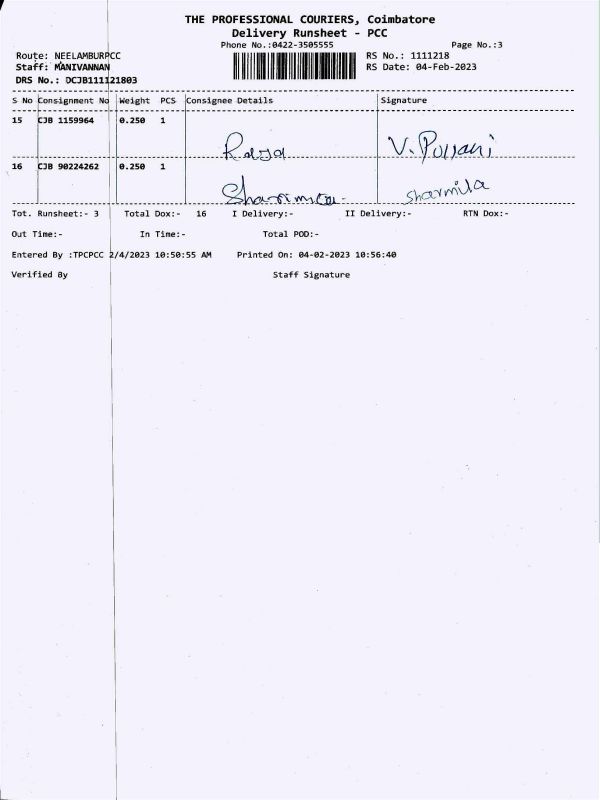 THE PROFESSIONAL COURIERS, Coimbatore
Delivery Runsheet - PCC
Phone No.:0422-3505555 Page No.:3
Route: NEELAMBURPCC RS No.: 1111218
Staff: MANIVANNAN RS Date: 04-Feb-2023
DRS No.: DCJB111121803
S No Consignment No Weight PCS Consignee Details Signature
15 CJB 1159964 0.250 1
Raja V.
16 CJB 90224262 0.250 1
sharmila
Tot. Runsheet:- 3 Total Dox:- 16 I Delivery:- II Delivery:- RTN Dox:-
Out Time:- In Time:- Total POD:-
Entered By :TPCPCC 2/4/2023 10:50:55 AM Printed On: 04-02-2023 10:56:40
Verified By Staff Signature